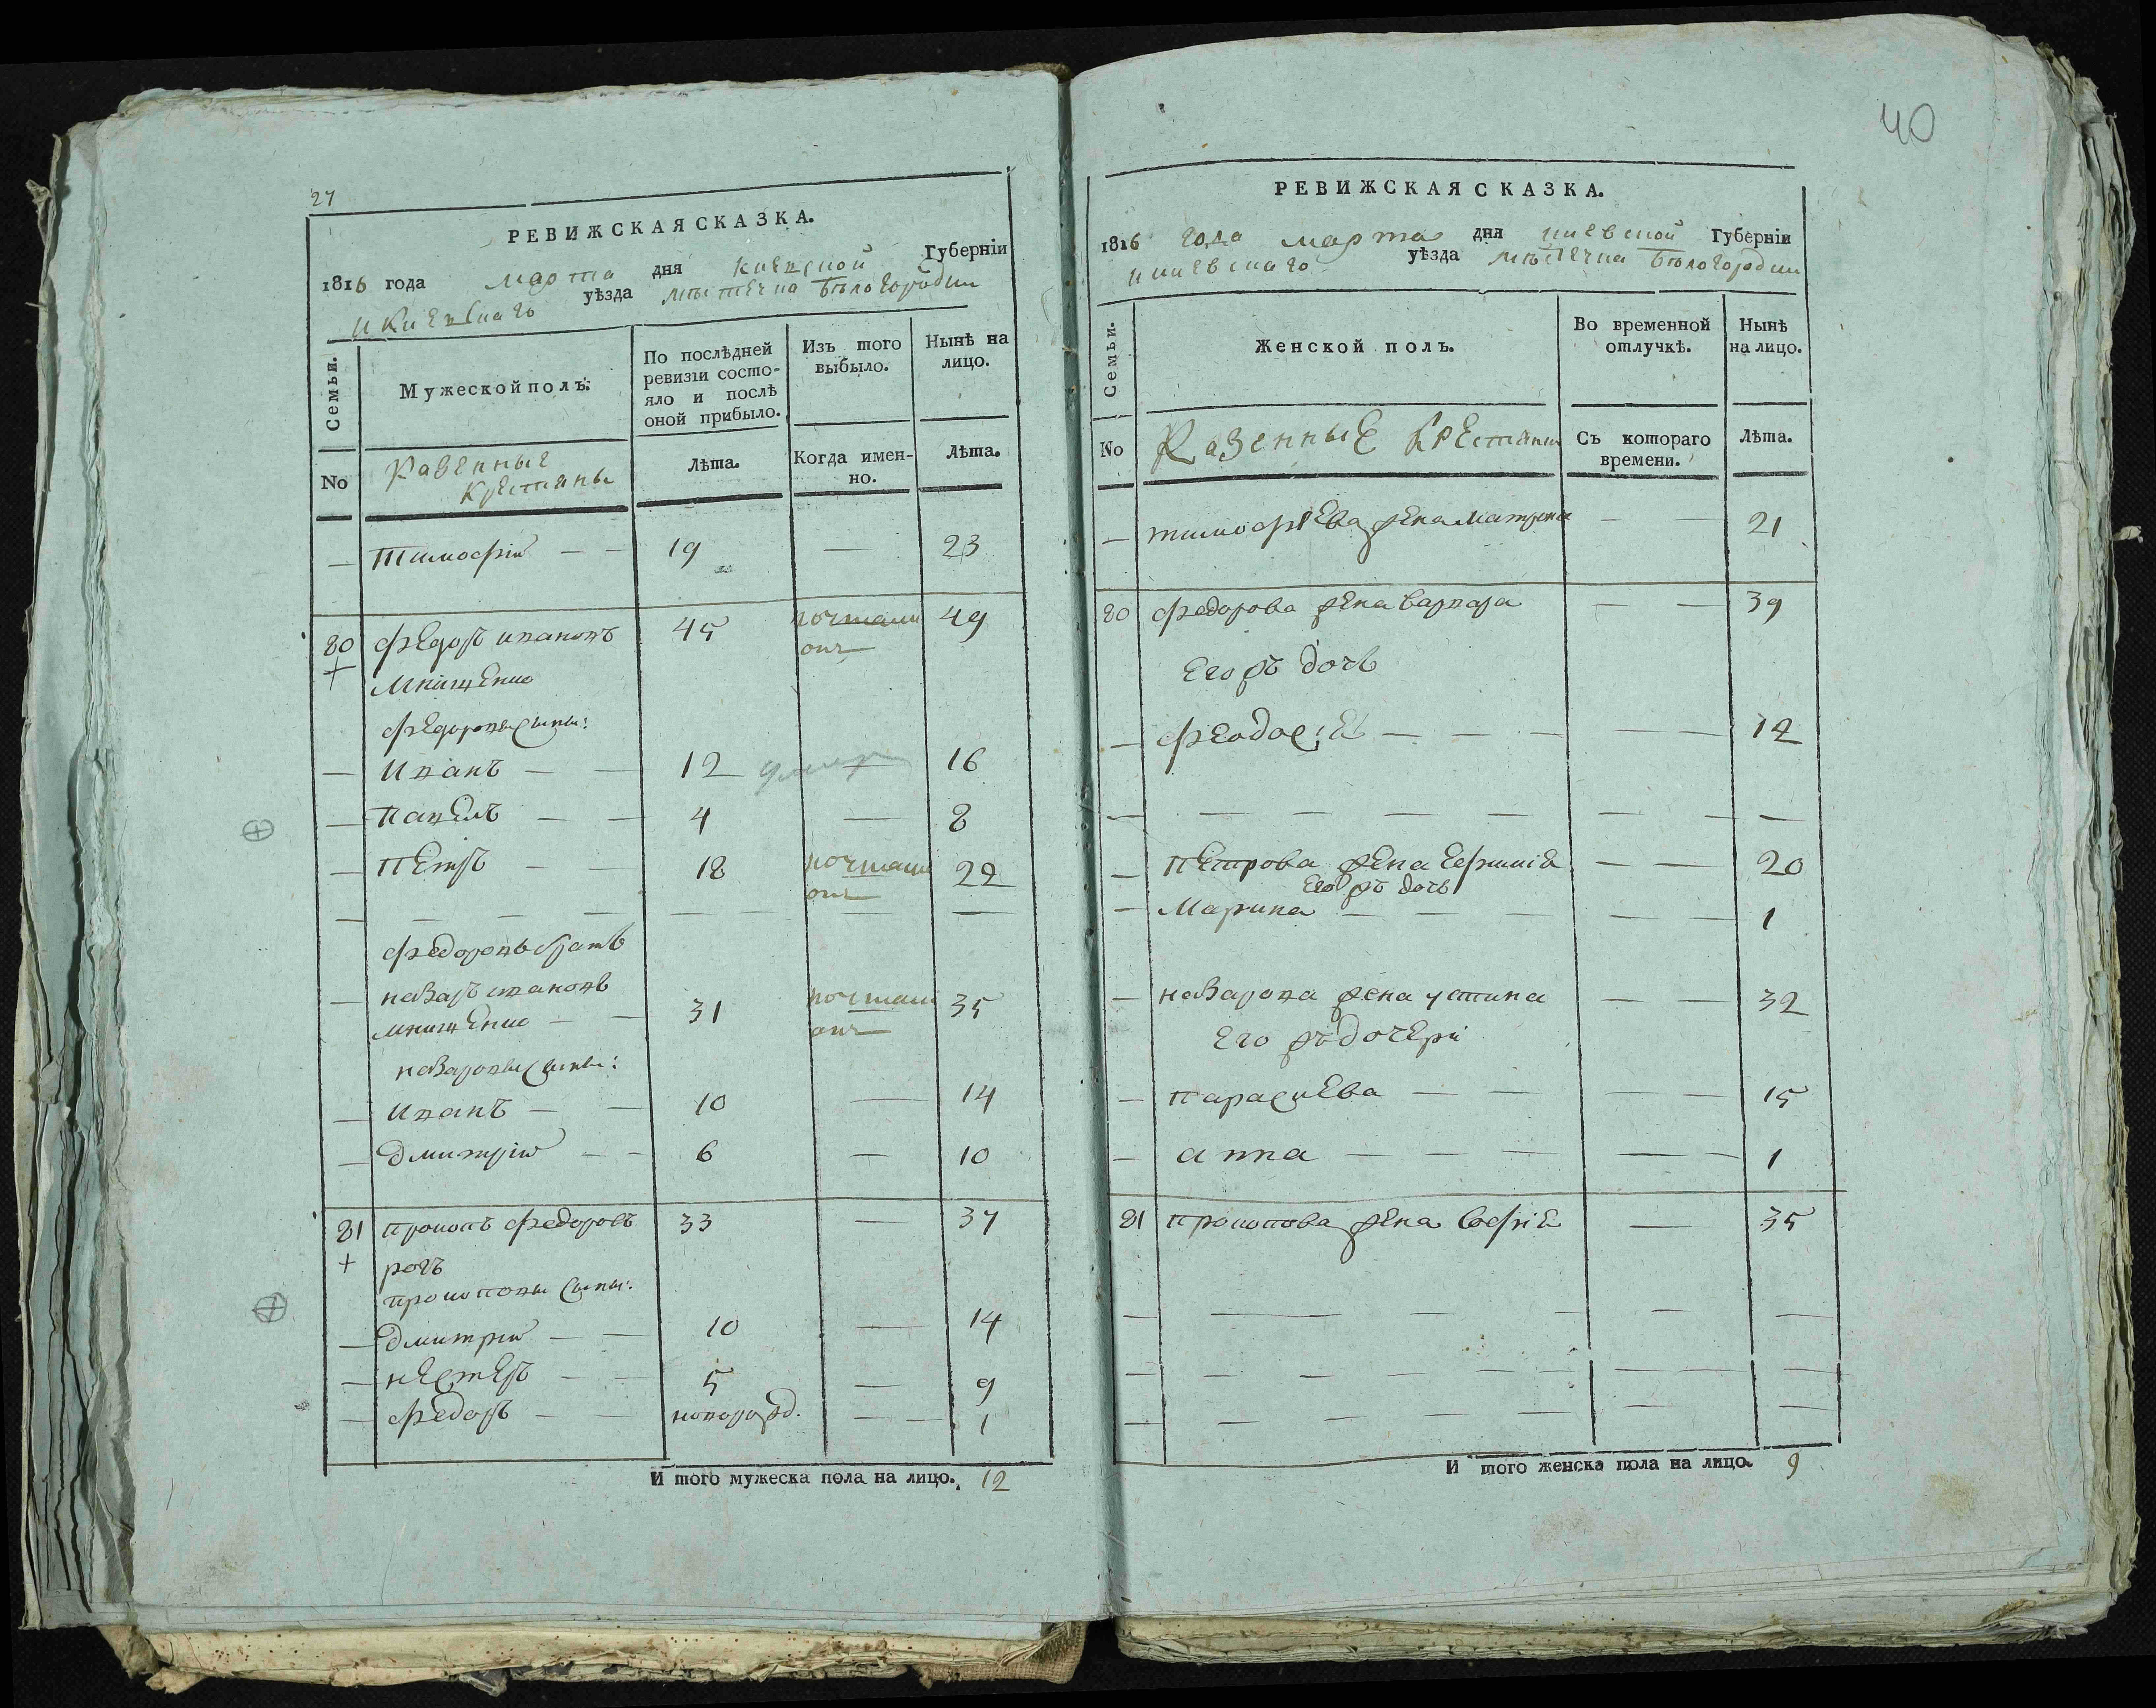 27
РЕВИЖСКАЯ СКАЗКА.
1816 года марта дня киевской Губернїи
и киевскаго уѣзда мѣстечка Бѣлогородки
Семьи.
Мужеской полъ.
По послѣдней ревизїи состо-
яло и послѣ
оной прибыло.
Изъ того
выбыло.
Нынѣ на
лицо.
No
Казенные
крестяны
Лѣта.
Когда имен-
но.
Лѣта.
— Тимофій — — 19 — 23
80 Федоръ Ивановъ 45 49
+ Мнищенко
Федоровы сыны:
— Иванъ — — 12 умер 16
— Павелъ — — 4 — 8
— Петръ — — 18 22
Федоровъ братъ
— Назаръ Ивановъ
Мнищенко — — 31 35
Назаровы сыны:
— Иванъ — — 10 — 14
— Дмитрій — — 6 — 10
81 Прокопъ Федоровъ 33 — 37
+ рогъ
Прокоповы сыны:
— Дмитрій — — 10 — 14
— Нестеръ — — 5 — 9
— Федоръ — — новорожд. — — 1
И того мужеска пола на лицо. 12
40
РЕВИЖСКАЯ СКАЗКА.
1816 года марта дня киевской Губернїи
и киевскаго уѣзда мѣстечка Бѣлогородки
Семьи.
Женской полъ.
Во временной
отлучкѣ.
Нынѣ
на лицо.
No
Казенные крестяни
Съ котораго
времени.
Лѣта.
— Тимофіева жена Матрона — — 21
80 Федорова жена Варвара — — 39
Егожъ дочь
— Феодосіа — — — — — 12
Петрова жена Ефиміа — — 20
Егожъ дочь
— Марина — — — — — 1
— Назарова жена Устина — — 32
Его жъ дочери
— Параскева — — — — 15
— Анна — — — — — 1
81 Прокопова жена Софіа — 35
И того женска пола на лицо. 9